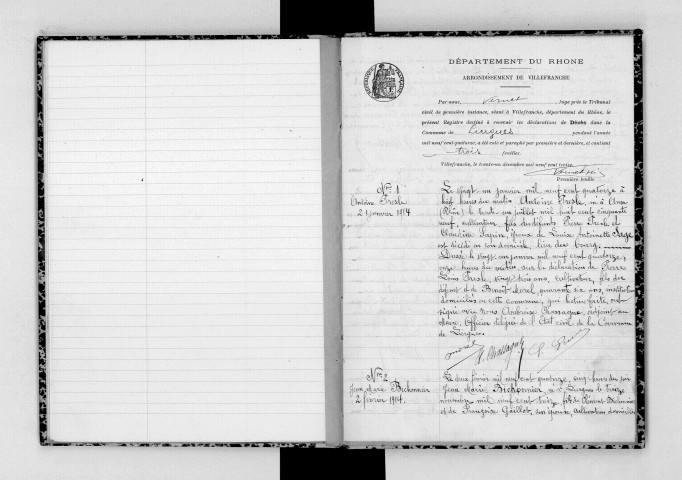 DÉPARTEMENT DU RHONE
ARRONDISSEMENT DE VILLEFRANCHE
Par nous, Vernet, Juge près le Tribunal
civil de première instance, séant à Villefranche, département du Rhône, le
présent Registre destiné à recevoir les déclarations de Décès dans la
Commune de Liergues pendant l'année
mil neuf cent quatorze, a été coté et paraphé par première et dernière, et contient
trois feuilles.
Villefranche, le trente-un décembre mil neuf cent treize.
Première feuille
No 1
Antoine Presle
21 janvier 1914
Le vingt un janvier mil neuf cent quatorze à
heures du matin Antoine Presle, né à
(Rhône) le trente un juillet mil huit cent cinquante
neuf, cultivateur, fils des défunts Pierre Presle et
Claudine Papin, époux de Louise Antoinette
est décédé en son domicile, lieu des bourg.
Dressé le vingt un janvier mil neuf cent quatorze,
onze heures du matin, sur la déclaration de Pierre
Louis Presle, vingt trois ans, cultivateur, fils du
défunt et de Benoît Morel, quarante six ans, instituteur
domiciliés en cette commune, qui lecture faite, ont
signé avec Nous Ambroise Chassagne, adjoint au
Maire, Officier délégué de l'Etat civil de la Commune
de Liergues.
Morel A. Chassagne P. Presle
No 2
Jean Marie Bichonnier
2 février 1914.
Le deux février mil neuf cent quatorze, cinq heures du soir
Jean Marie Bichonnier, né à Liergues le treize
novembre mil neuf cent treize, fils de Clément
et de Françoise Gaillot, son épouse, cultivateurs domiciliés